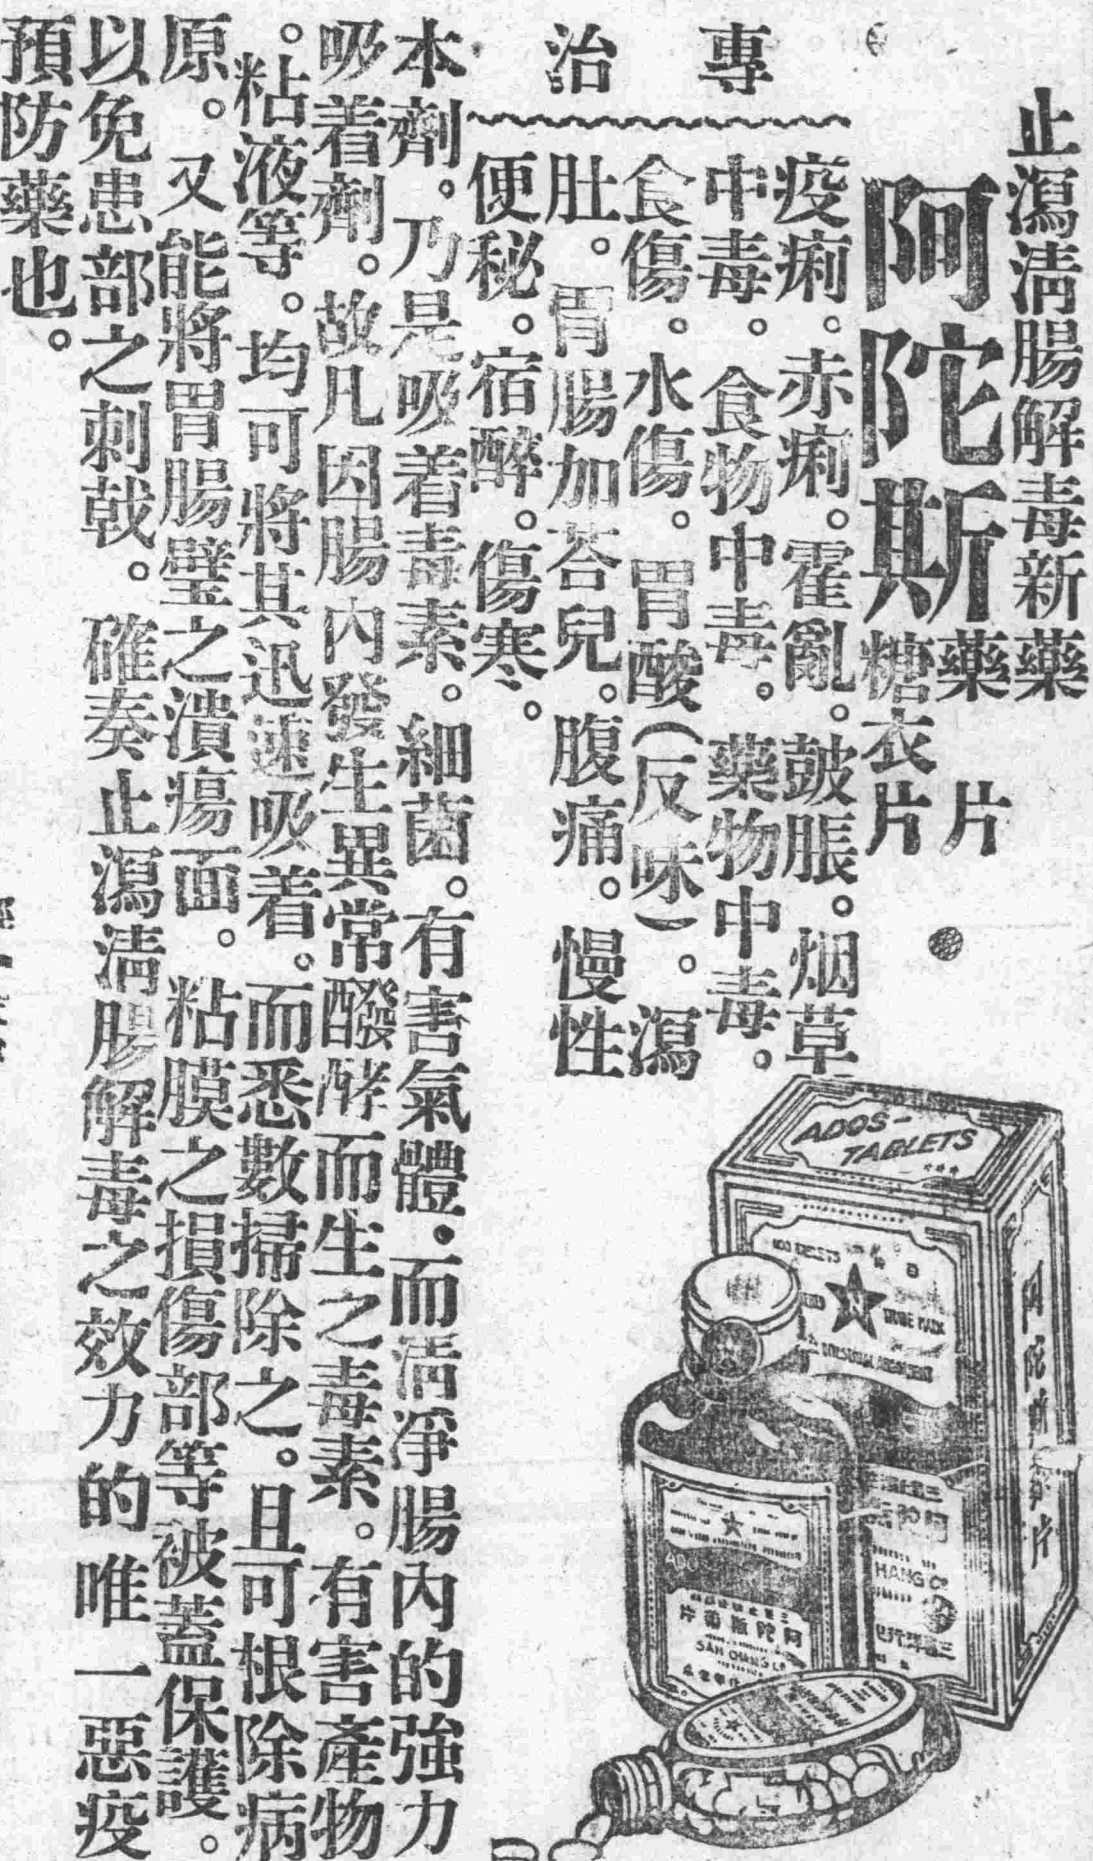 止瀉淸腸解毒新藥
阿陀斯
藥片
糖衣片
專治
疫痢。赤痢。霍亂。鼓脹。烟草
中毒。食物中毒。藥物中毒。
食傷。水傷。胃酸(反味)。瀉
肚。胃腸加荅兒。腹痛。慢性
便秘。宿醉。傷寒。
本劑。乃是吸着毒素。細菌。有害氣體。而淸淨腸內的強力
吸着劑。故凡因腸內發生異常醱酵而生之毒素。有害產物
。粘液等。均可將其迅速吸着。而悉數掃除之。且可根除病
原。又能將胃腸璧之潰瘍面。粘膜之損傷部等被蓋保護。
以免患部之刺戟。確奏止瀉淸腸解毒之效力的唯一惡疫
預防藥也。
ADOS-
TABLETS
TRADE MARK
HANG Co
阿陀斯藥片
SAN CHANG Co